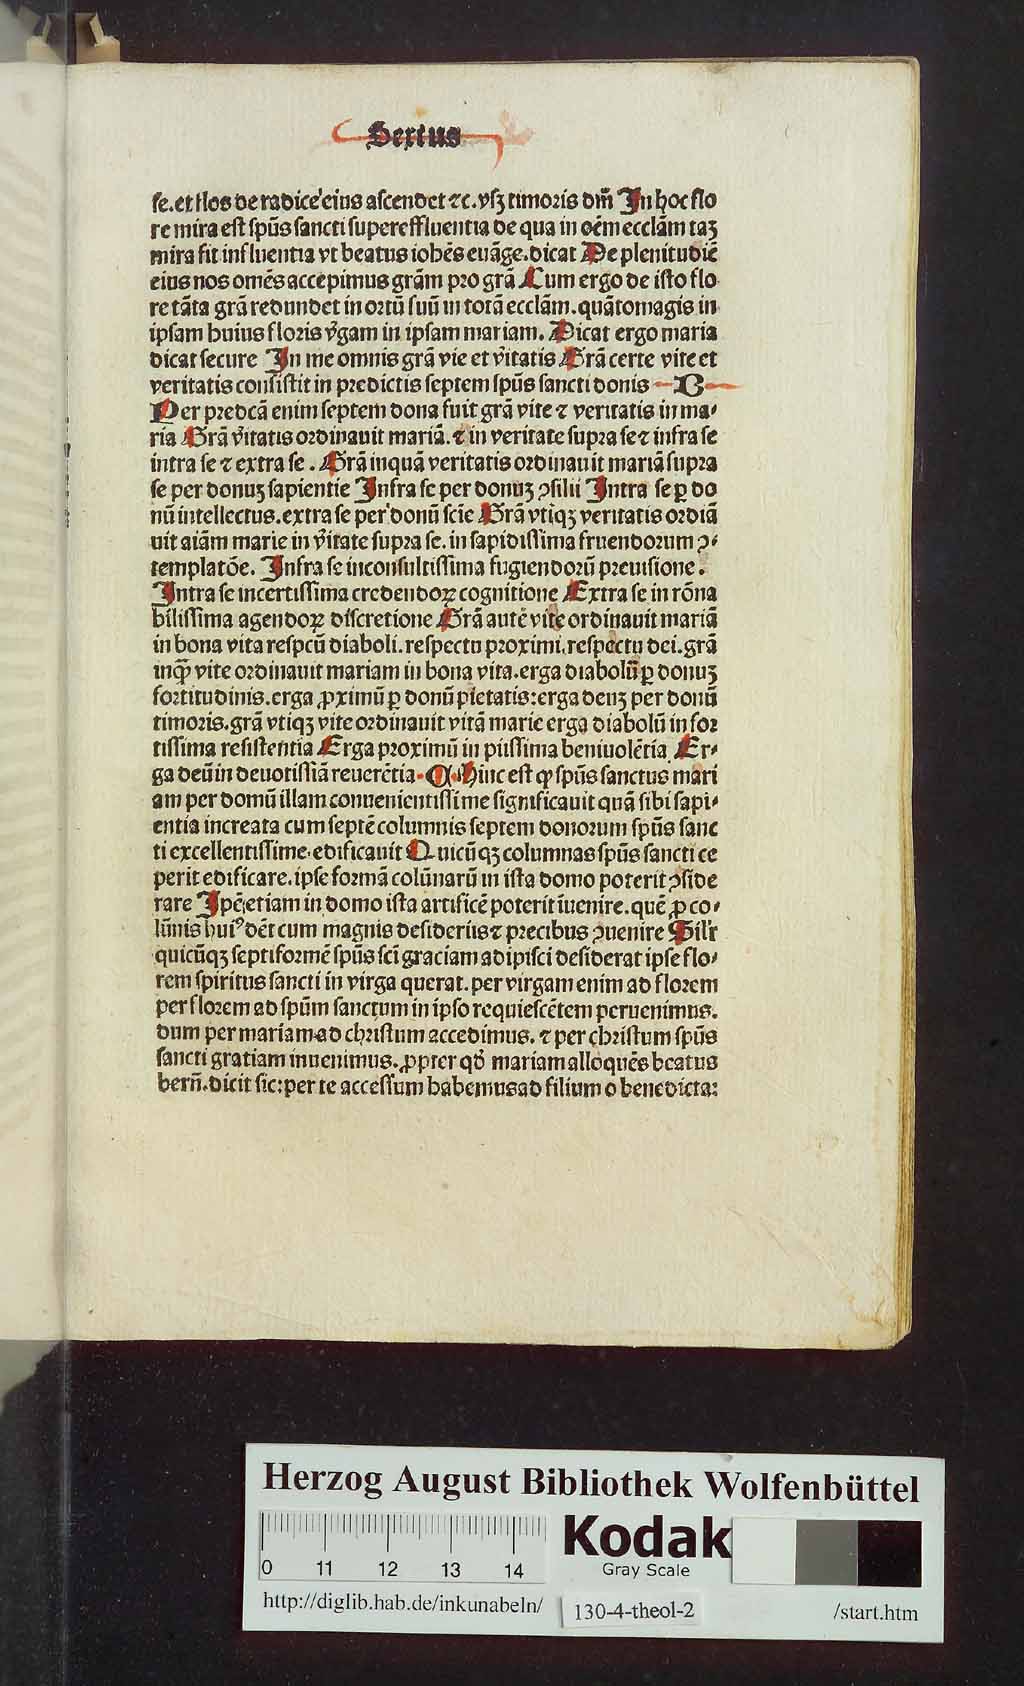 Sextus
se. et flos de radice eius ascendet ⁊c. vsꝫ timoris dm̄ In hoc flo
re mira est spūs sancti supereffluentia de qua in oēm ecclām taꝫ
mira fit influentia vt beatus iohēs euāge. dicat De plenitudīe
eius nos omēs accepimus grām pro grā Cum ergo de isto flo
re tāta grā redundet in ortū suū in totā ecclām. quātomagis in
ipsam huius floris v̄gam in ipsam mariam. Dicat ergo maria
dicat secure In me omnis grā vie et v̄itatis Grā certe vite et
veritatis consistit in predictis septem spūs sancti donis B
Per predcā enim septem dona fuit grā vite ⁊ veritatis in ma⸗
ria Grā v̄itatis ordinauit mariā. ⁊ in veritate supra se ⁊ infra se
intra se ⁊ extra se. Grā inquā veritatis ordinauit mariā supra
se per donuꝫ sapientie Infra se per donuꝫ ↄsilii Intra se ꝑ do
nū intellectus. extra se per donū scīe Grā vtiqꝫ veritatis ordiā
uit aiām marie in v̄itate supra se. in sapidissima fruendorum ↄ⸗
templatōe. Infra se inconsultissima fugiendorū preuisione.
Intra se incertissima credendoꝝ cognitione Extra se in rōna
bilissima agendoꝝ discretione Grā autē vite ordinauit mariā
in bona vita respcū diaboli. respectu proximi. respectu dei. grā
inqͣꝫ vite ordinauit mariam in bona vita. erga diabolū ꝑ donuꝫ
fortitudinis. erga ꝓximū ꝑ donū pietatis: erga deuꝫ per donū
timoris. grā vtiqꝫ vite ordinauit vitā marie erga diabolū in for
tissima resistentia Erga proximū in piissima beniuolētia Er⸗
ga deū in deuotissiā reuerētia ⸿ Hinc est ꝙ spūs sanctus mari
am per domū illam conuenientissime significauit quā sibi sapi⸗
entia increata cum septē columnis septem donorum spūs sanc
ti excellentissime. edificauit Quicūqꝫ columnas spūs sancti ce
perit edificare. ipse formā colūnarū in ista domo poterit ↄside
rare Ipē etiam in domo ista artificē poterit īuenire. quē ꝓ co⸗
lūnis huiꝰ dēt cum magnis desideriis ⁊ precibus ↄuenire Silr
quicūqꝫ septiformē spūs scī graciam adipisci desiderat ipse flo⸗
rem spiritus sancti in virga querat. per virgam enim ad florem
per florem ad spūm sanctum in ipso requiescētem peruenimus.
dum per mariam ad christum accedimus. ⁊ per christum spūs
sancti gratiam inuenimus. ꝓpter qď mariam alloquēs beatus
bern̄. dicit sic: per te accessum habemus ad filium o benedicta:
Herzog August Bibliothek Wolfenbüttel
0 11 12 13 14
Kodak
Gray Scale
http://diglib.hab.de/inkunabeln/ 130-4-theol-2 /start.htm